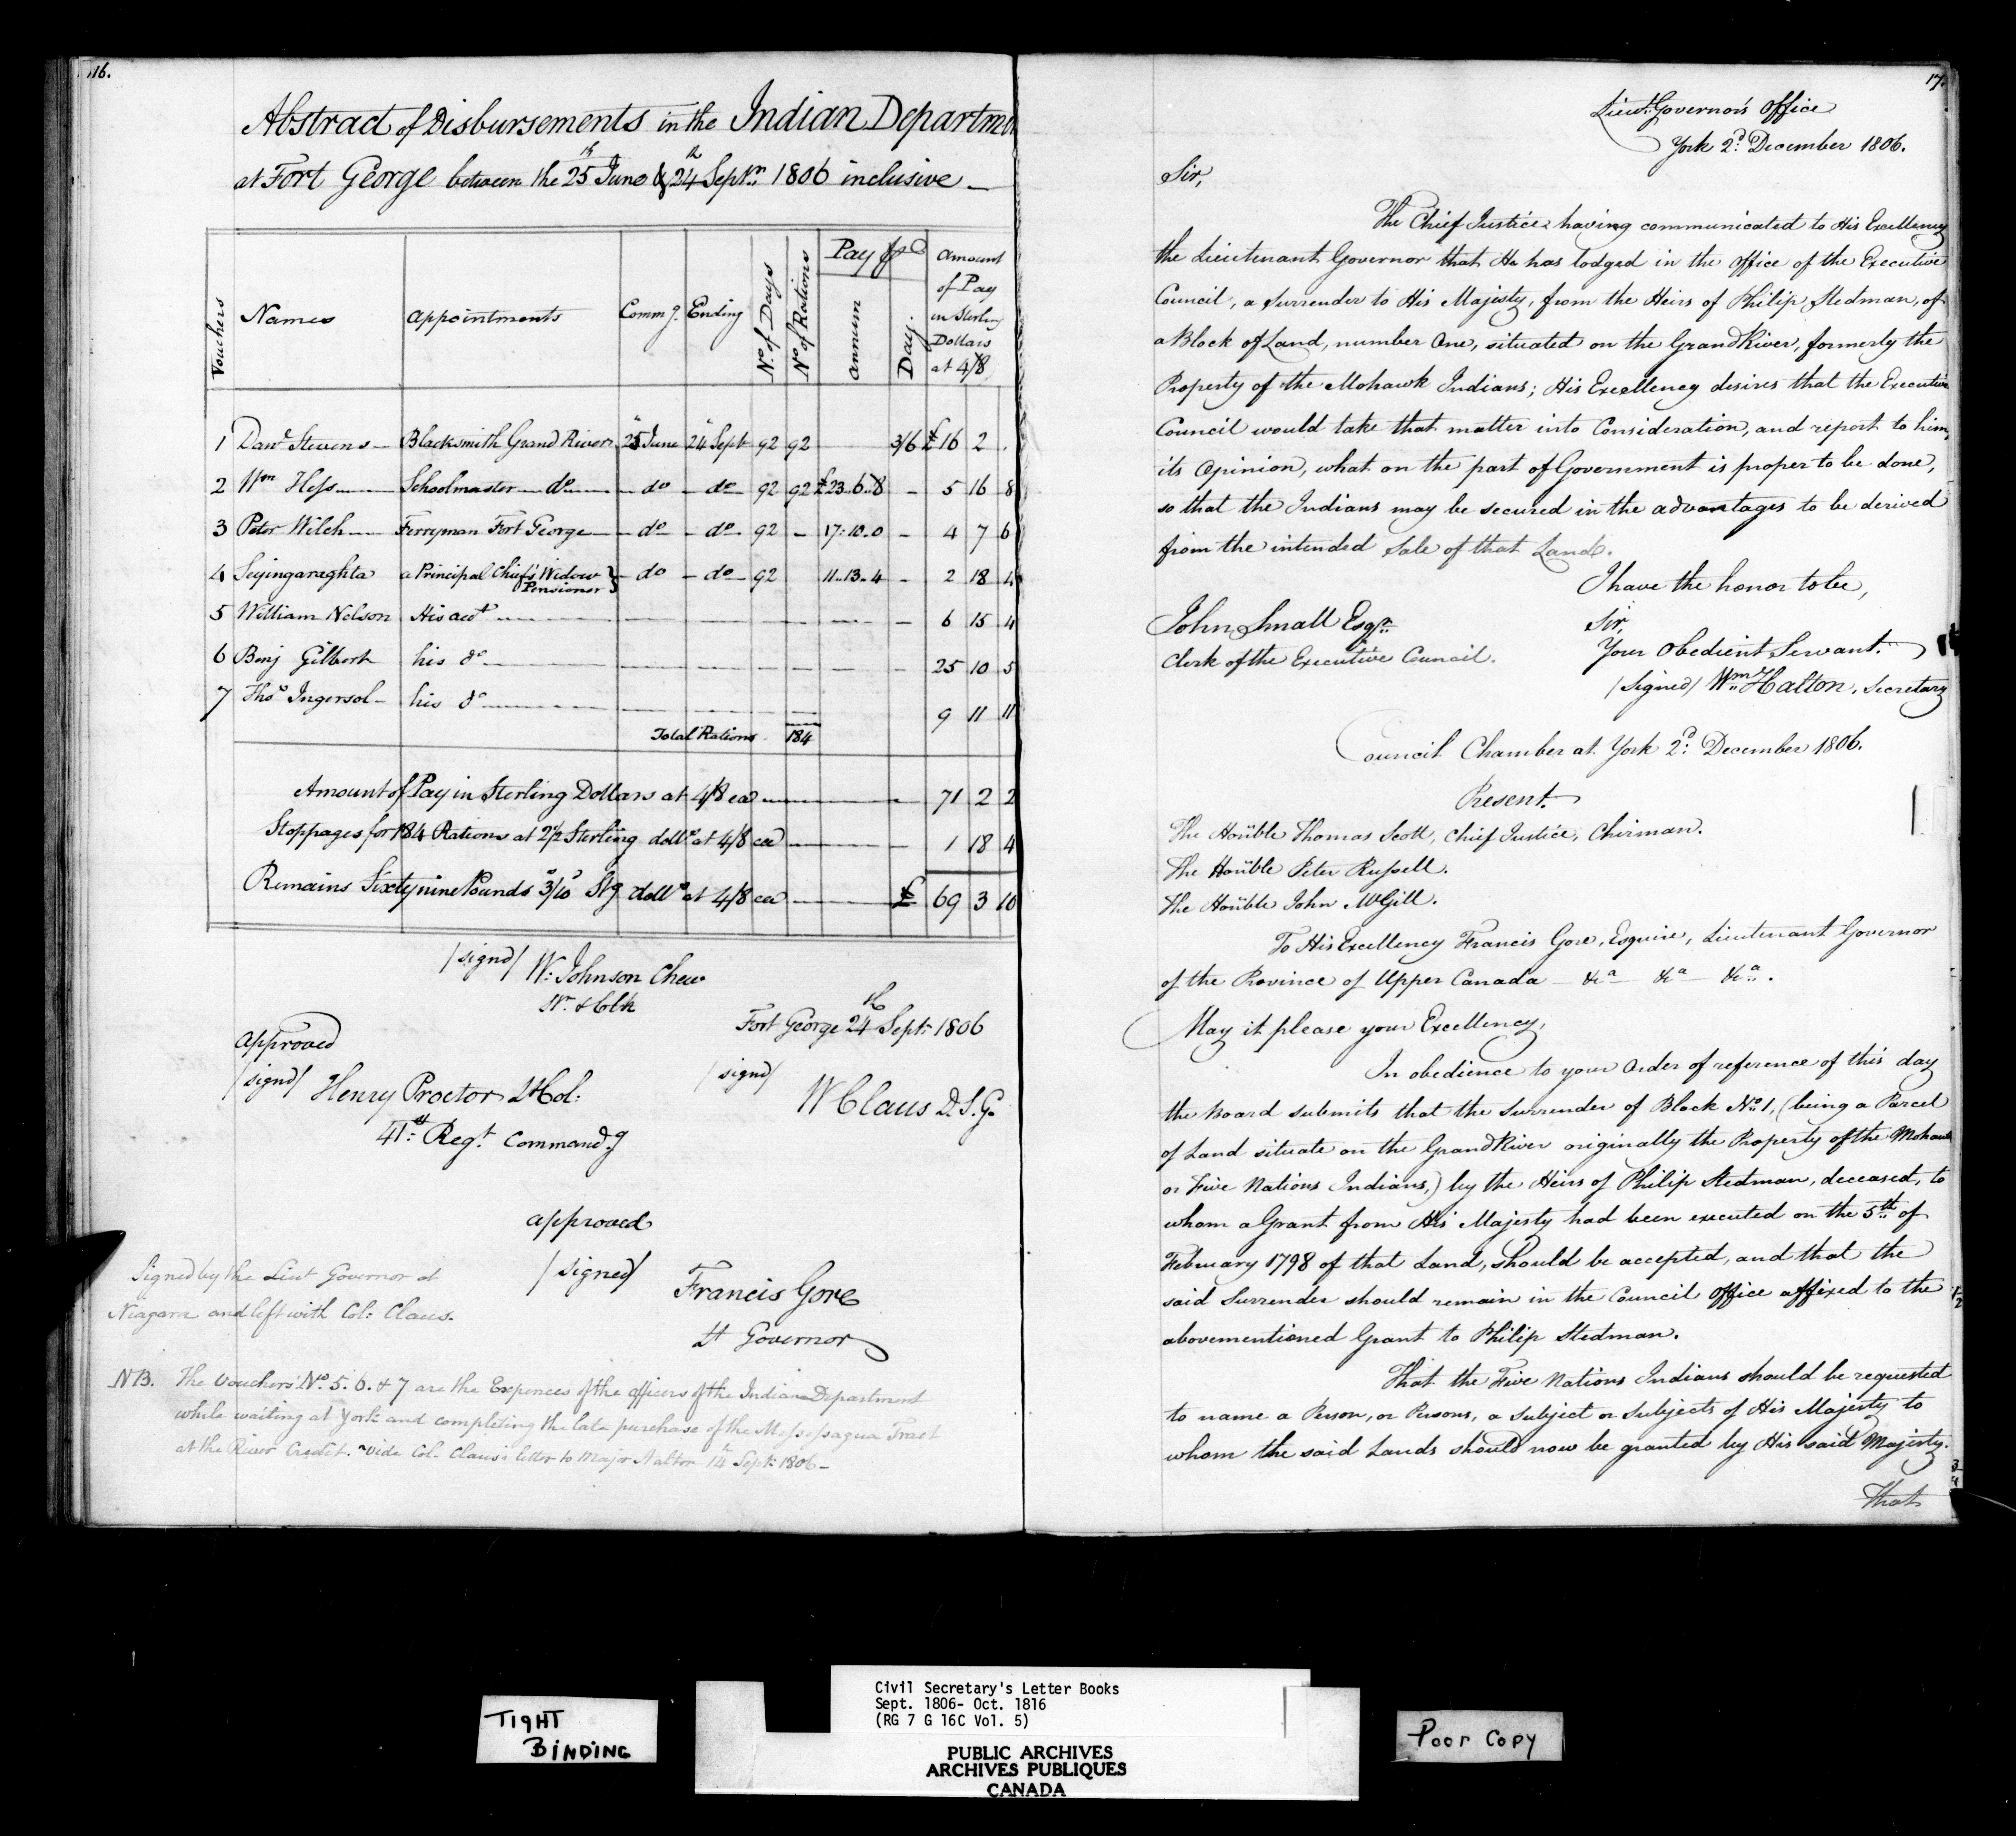 116.
Abstract of Disbursements in the Indian Departme
at Fort George between the 25th June & 24th Septr. 1806 inclusive
Vouchers Names Appointments Commg. Ending No. of Days No. of Rations Pay pr. Annum Day. Amount of Pay in Sterling Dollars at 4/8
1 Danl. Stevens Blacksmith Grand River 25 June 24 Sept 92 92 3/6 £16 2 .
2 Wm Hess Schoolmaster do do do 92 92 £23..6..8 5 16 8
3 Peter Wilch Ferryman Fort George do do 92 17:10..0 4 7 6
4 Seyingaraghta a Principal Chief's Widow Pensioner } do do 92 11..13..4 2 18 4
5 William Nelson His acct 6 15 4
6 Benj Gilbert his do 25 10 5
7 Thos Ingersol his do 9 11 11
Total Rations 184
Amount of Pay in Sterling Dollars at 4/8 ea 71 2 2
Stoppages for 184 Rations at 2½ Sterling dolls at 4/8 ea 1 18 4
Remains Sixty nine Pounds 3/10 Stg dolls at 4/8 ea £ 69 3 10
/signd/ W. Johnson Chew
Sr. & Clk
Fort George 24th Sept. 1806
Approved
/signd/ Henry Proctor Lt Col:
41st Regt. Commandg
/signd/
W Claus D.S.G.
approved
/signed/ Francis Gore
Lt Governor
Signed by the Lieut Governor at
Niagara and left with Col: Claus.
NB. The Vouchers No. 5. 6. & 7 are the Expences of the officers of the Indian Department
while waiting at York and completing the late purchase of the Messessagua Tract
at the River Credit. Vide Col. Claus's letter to Major Halton 14 Sept. 1806
17.
Lieut. Governor's Office
York 2d. December 1806.
Sir,
The Chief Justice having communicated to His Excellency
the Lieutenant Governor that He has lodged in the Office of the Executive
Council, a Surrender to His Majesty, from the Heirs of Philip Stedman, of
a Block of Land, number One, situated on the Grand River, formerly the
Property of the Mohawk Indians; His Excellency desires that the Executive
Council would take that matter into Consideration, and report to him,
its Opinion, what on the part of Government is proper to be done,
so that the Indians may be secured in the advantages to be derived
from the intended Sale of that Land.
I have the honor to be,
Sir,
Your Obedient Servant.
/Signed/ Wm. Halton, Secretary
John Small Esqr.
Clerk of the Executive Council.
Council Chamber at York 2d. December 1806.
Present.
The Honble Thomas Scott, Chief Justice, Chirman.
The Honble Peter Russell.
The Honble John McGill.
To His Excellency Francis Gore, Esquire, Lieutenant Governor
of the Province of Upper Canada &ca &ca &ca.
May it please your Excellency,
In obedience to your Order of reference of this day
the Board submits that the Surrender of Block No. 1, (being a Parcel
of Land situate on the Grand River originally the Property of the Mohawk
or Five Nations Indians,) by the Heirs of Philip Stedman, deceased, to
whom a Grant from His Majesty had been executed on the 5th of
February 1798 of that Land, should be accepted, and that the
said Surrender should remain in the Council Office affixed to the
abovementioned Grant to Philip Stedman.
That the Five Nations Indians should be requested
to name a Person, or Persons, a Subject or Subjects of His Majesty to
whom the said Lands should now be granted by His said Majesty.
That
TIGHT
BINDING
Civil Secretary's Letter Books
Sept. 1806- Oct. 1816
(RG 7 G 16C Vol. 5)
PUBLIC ARCHIVES
ARCHIVES PUBLIQUES
CANADA
Poor Copy